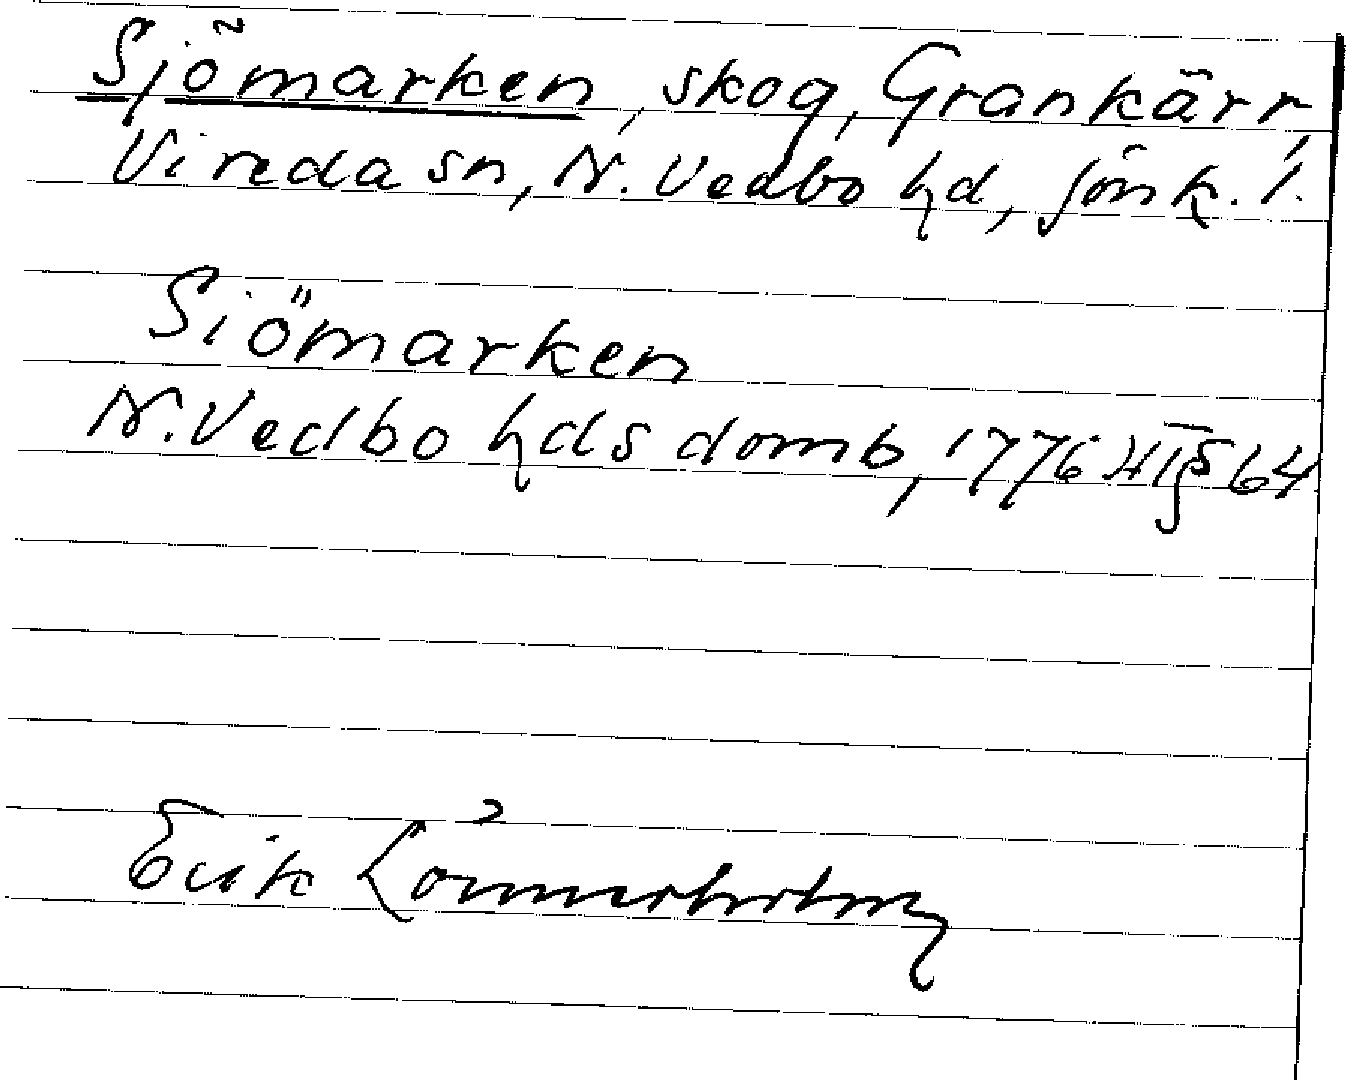 Sjömarken, skog, Grankärr,
Vireda sn, N. Vedbo hd, Jönk. l.
Siömarken
N. Vedbo hds domb, 1776 HT § 64
Erik Lönnerholm